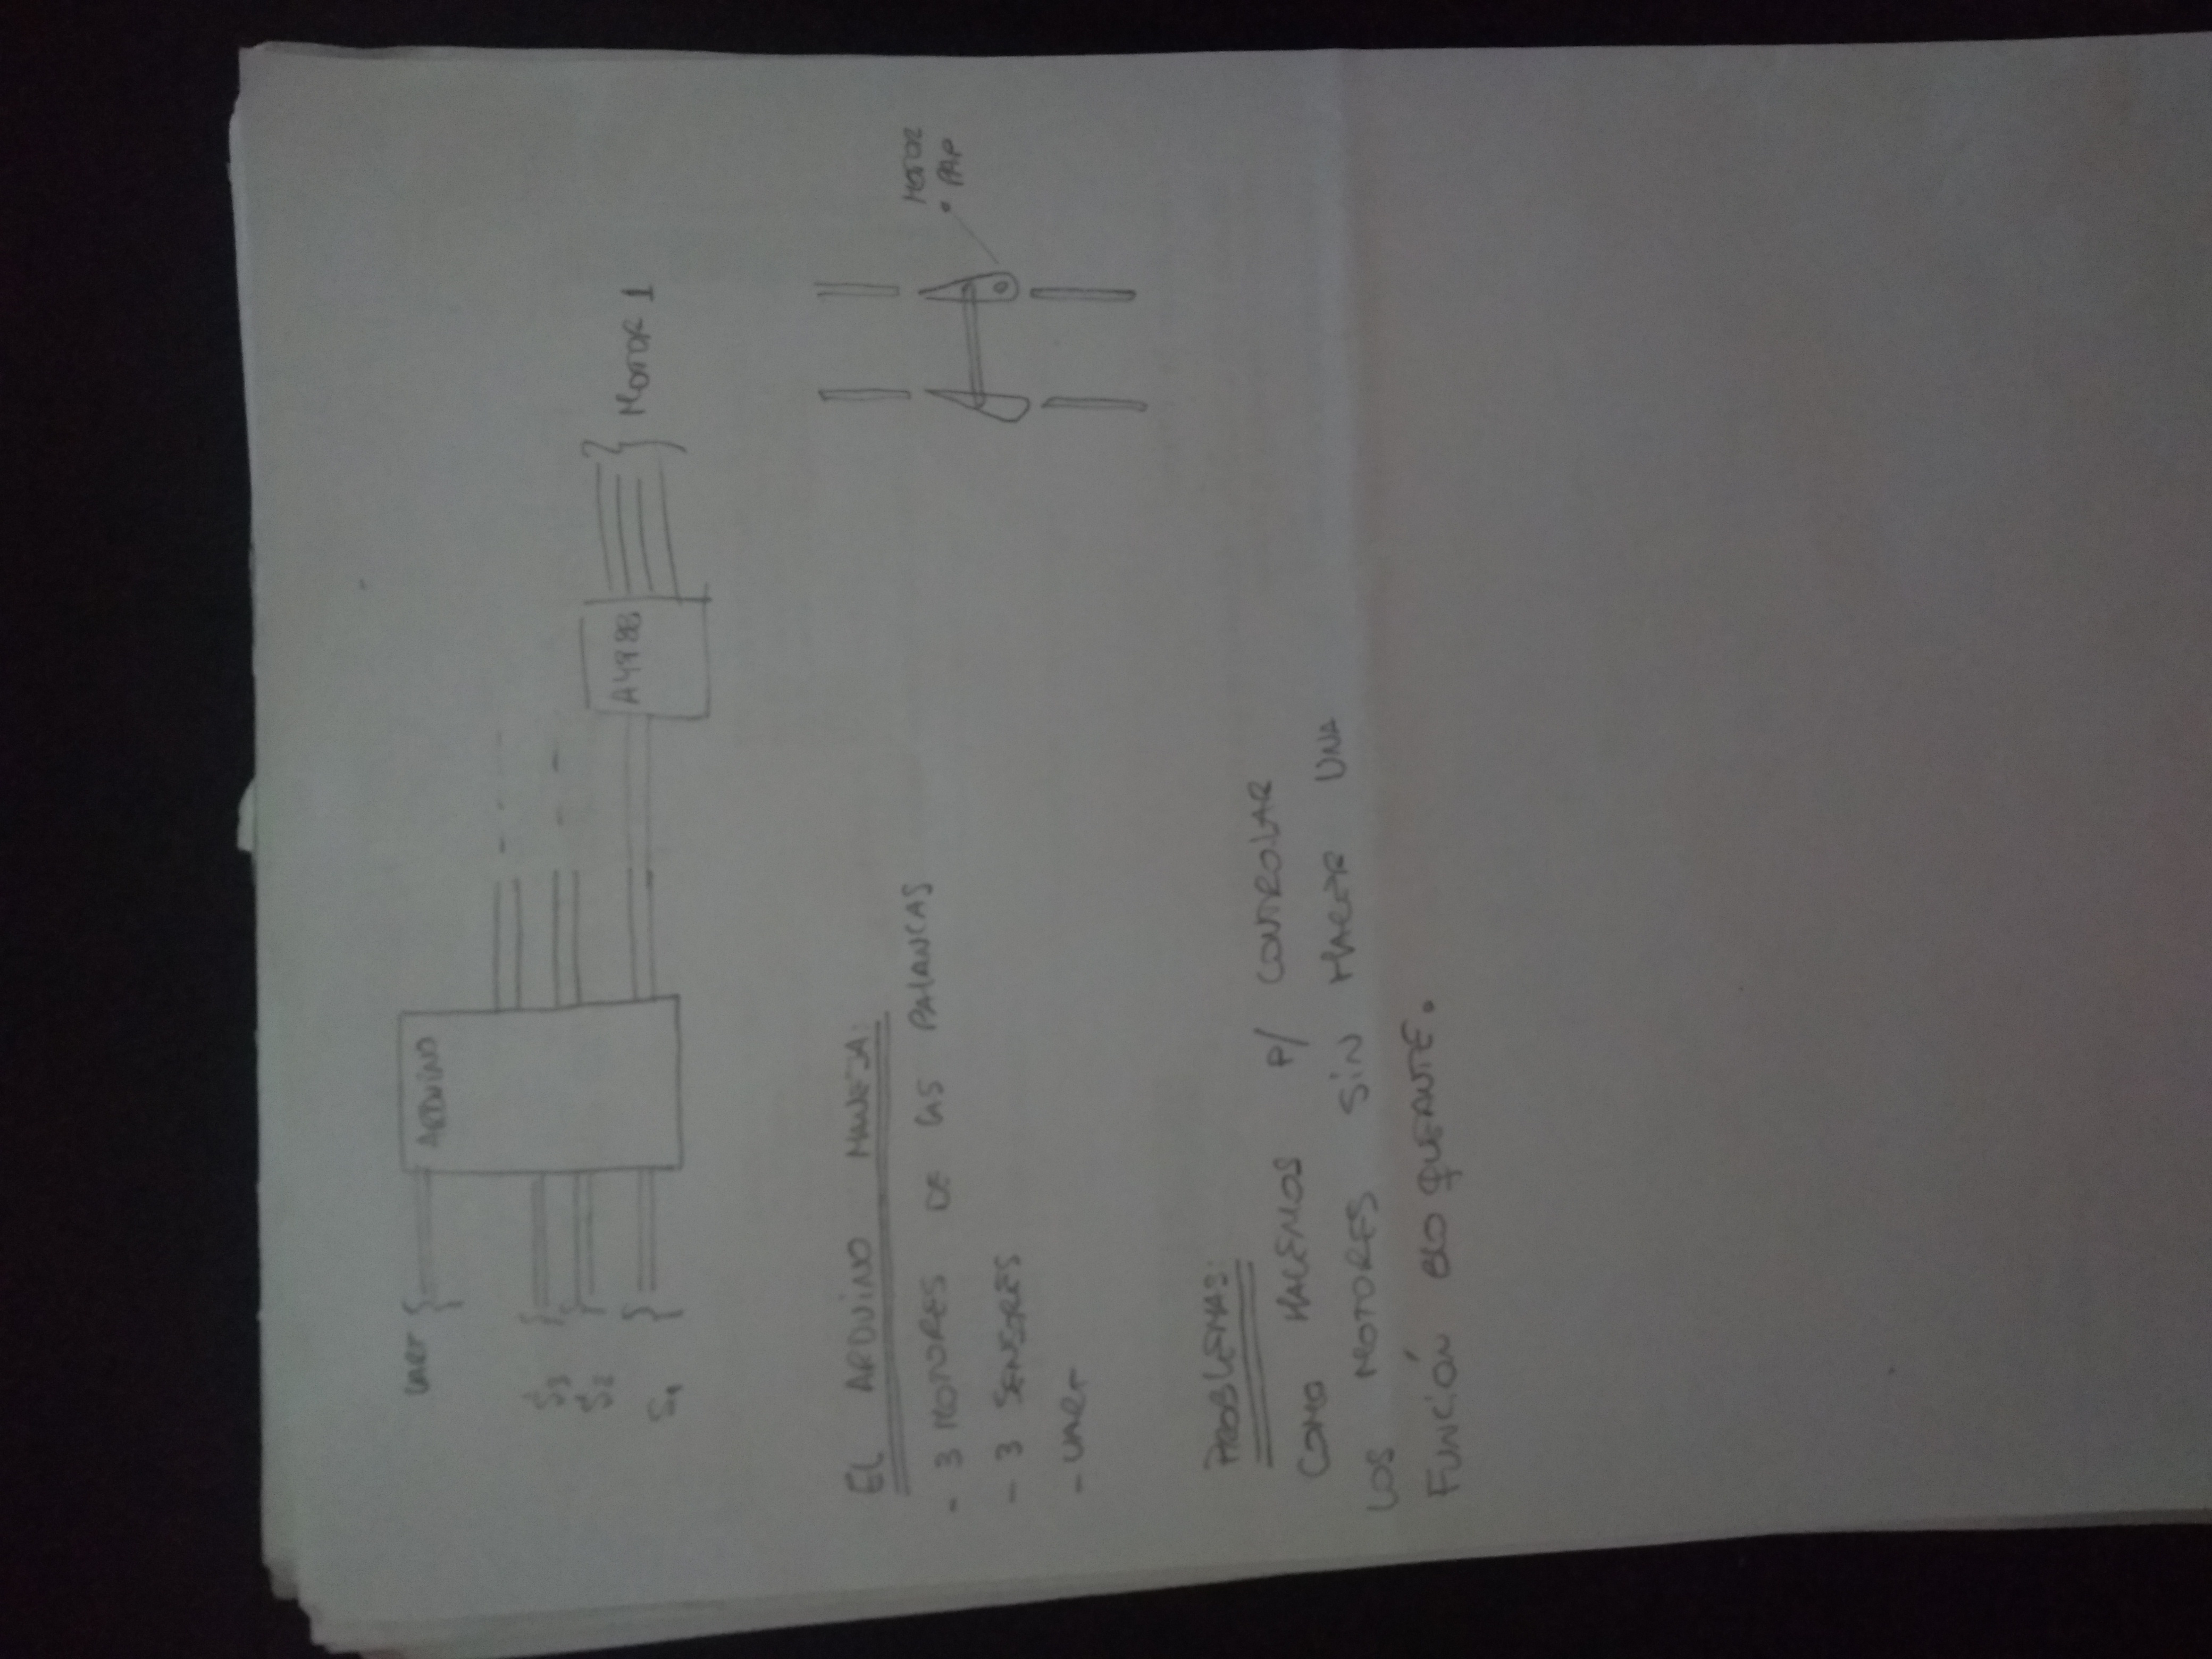 UART
ARDUINO
S3
S2
S1
A4988
MOTOR 1
EL ARDUINO MANEJA:
- 3 MOTORES DE LAS PALANCAS
- 3 SENSORES
- UART
MOTOR
PAP
PROBLEMAS:
COMO HACEMOS P/ CONTROLAR
LOS MOTORES SIN HACER UNA
FUNCIÓN BLOQUEANTE.